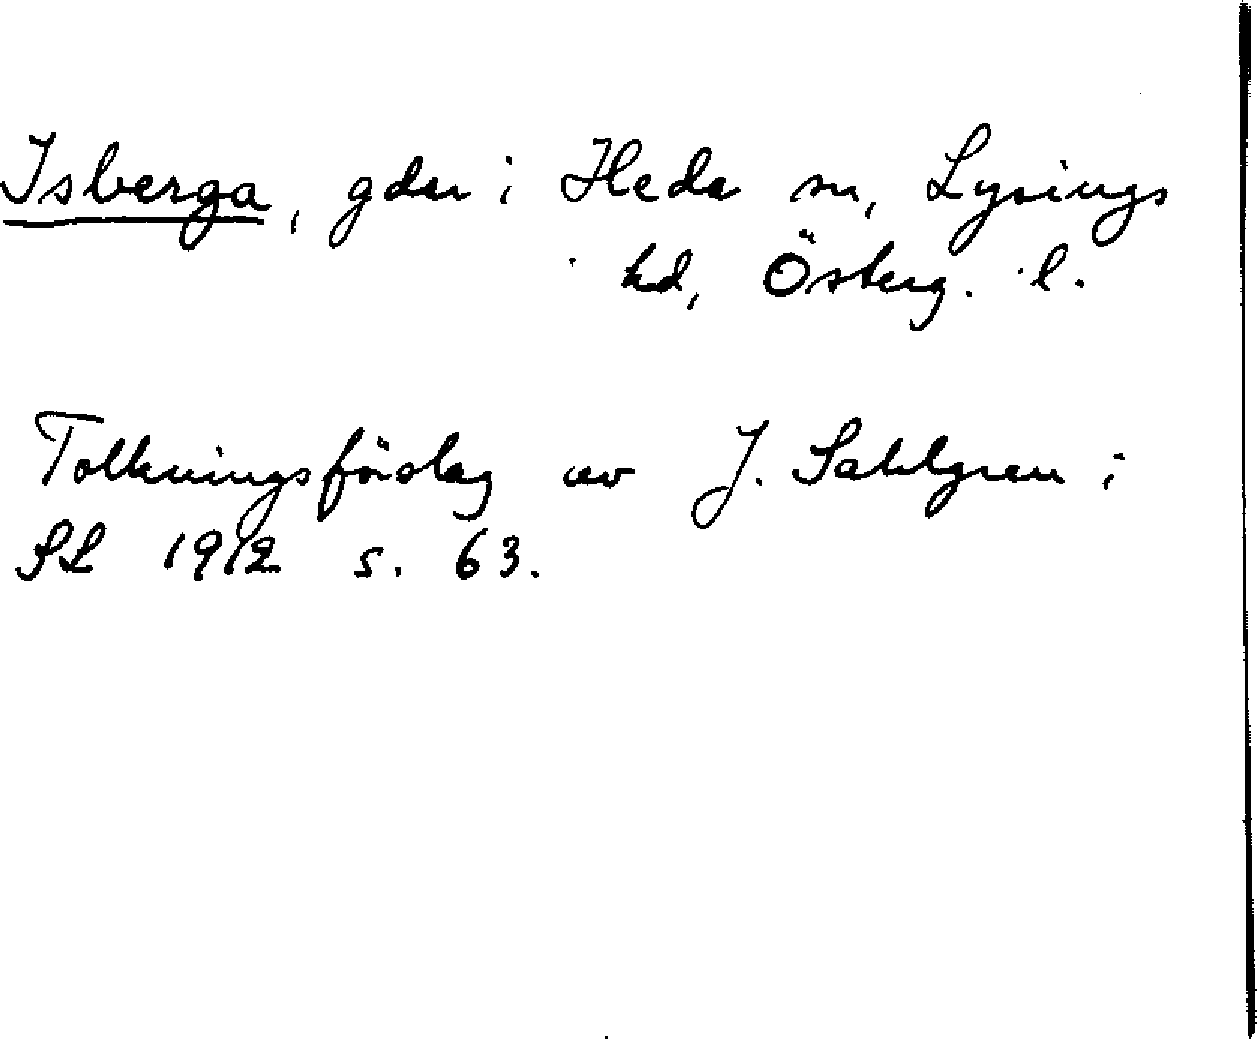 Isberga, gdar i Heda sn, Lysings
hd, Österg. l.
Tolkningsförslag av J. Sahlgren i
SL 1912 s. 63.